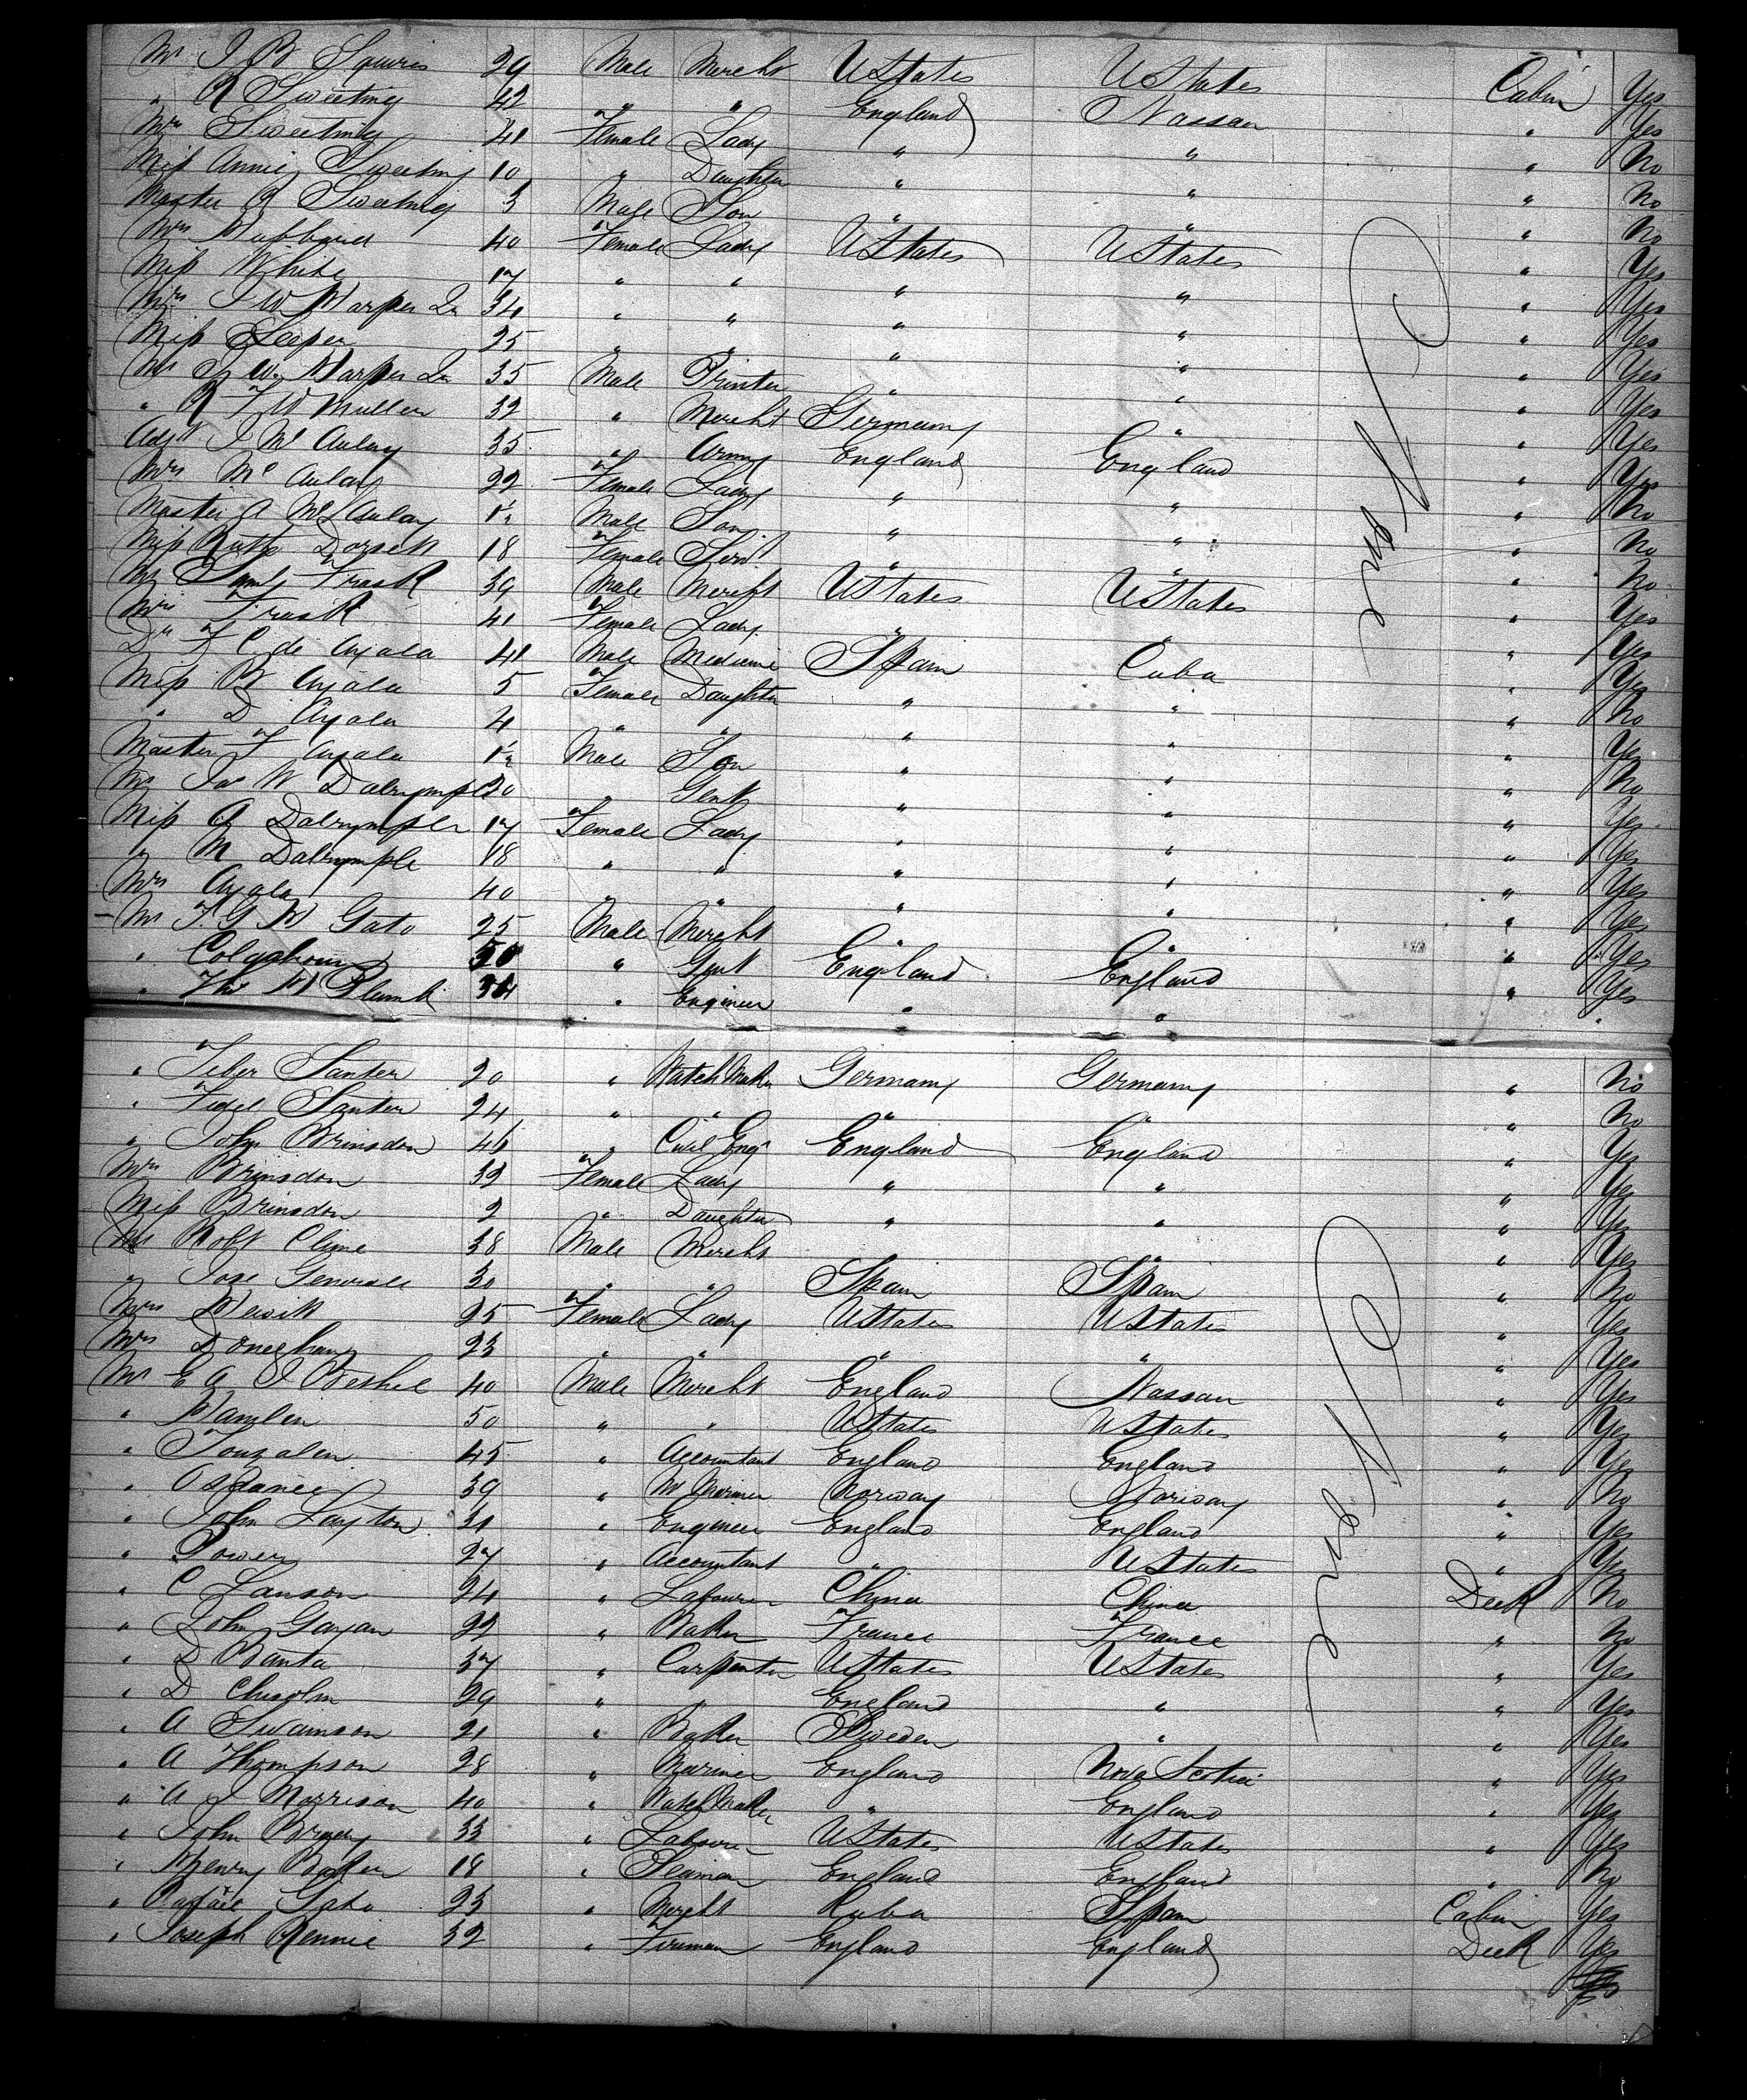 Mr J B Squires 29 Male Mercht UStates UStates Cabin Yes
" R Sweeting 42 " " England Nassau " Yes
Mrs Sweeting 41 Female Lady " " " No
Miss Annie Sweeting 10 " Daughter " " " No
Master R Sweeting 3 Male Son " " " No
Mrs Hubbard 40 Female Lady UStates UStates " Yes
Miss White 17 " " " " " Yes
Mrs J W Harper Jr 34 " " " " " Yes
Miss Sleeper 25 " " " " " Yes
Mr J W Harper Jr 35 Male Printer " " " Yes
" R F W Muller 32 " Mercht Germany " " Yes
Adjt J Mc Aulay 35 " Army England England " Yes
Mrs Mc Aulay 22 Female Lady " " " No
Master A Mc Aulay 1½ Male Son " " " No
Miss Kate Dorsett 18 Female Servt " " " No
Mr Saml Trask 39 Male Mercht UStates UStates " Yes
Mrs Trask 41 Female Lady " " " Yes
Dr F C de Ayala 41 Male Medicine Spain Cuba " Yes
Miss B Ayala 5 Female Daughter " " " No
" D Ayala 4 " " " " " Yes
Master F Ayala 1½ Male Son " " " No
Mr Jas W Dalrymple 20 " Gent " " " Yes
Miss A Dalrymple 17 Female Lady " " " Yes
" M Dalrymple 18 " " " " " Yes
Mrs Ayala 40 " " " " " Yes
Mr F. G. H Gato 25 Male Mercht " " " Yes
" Colquhoun 50 " Gent England England " Yes
" Thos H Plumb 34 " Engineer " " "
" Tiber Santer 20 " Watch Maker Germany Germany " No
" Fidel Santer 24 " " " " " No
" John Brinsdon 46 " Civil Engr England England " Yes
Mrs Brinsdon 32 Female Lady " " " Yes
Miss Brinsdon 2 " Daughter " " " Yes
Mr Robt Clime 38 Male Mercht " " " Yes
" Jose Generale 30 " " Spain Spain " No
Mrs Hewitt 25 Female Lady UStates UStates " Yes
Mrs Doneghany 23 " " " " " Yes
Mr E A J Bethel 40 Male Mercht England Nassau " Yes
" Hamlen 50 " " UStates UStates " Yes
" Touzalen 45 " Accountant England England " Yes
" 39 " Mariner Norway Norway " No
" John Layton 31 " Engineer England England " Yes
" Power 27 " Accountant " UStates " Yes
" C Lanson 24 " Labourer China China Deck No
" John Gayan 22 " Baker France France " No
" D Banta 37 " Carpenter UStates UStates " Yes
" D Chisolm 29 " " England " " Yes
" A Swainson 21 " Baker Sweden " " Yes
" A Thompson 28 " Mariner England Nova Scotia " Yes
" A J Morrison 40 " Watch Maker " England " Yes
" John Brady 33 " Labourer UStates UStates " Yes
" Henry Baker 18 " Seaman England England " No
" Rafael Gato 23 " Mercht Kuba Spain Cabin Yes
" Joseph Rennie 32 " Fireman England England Deck Yes